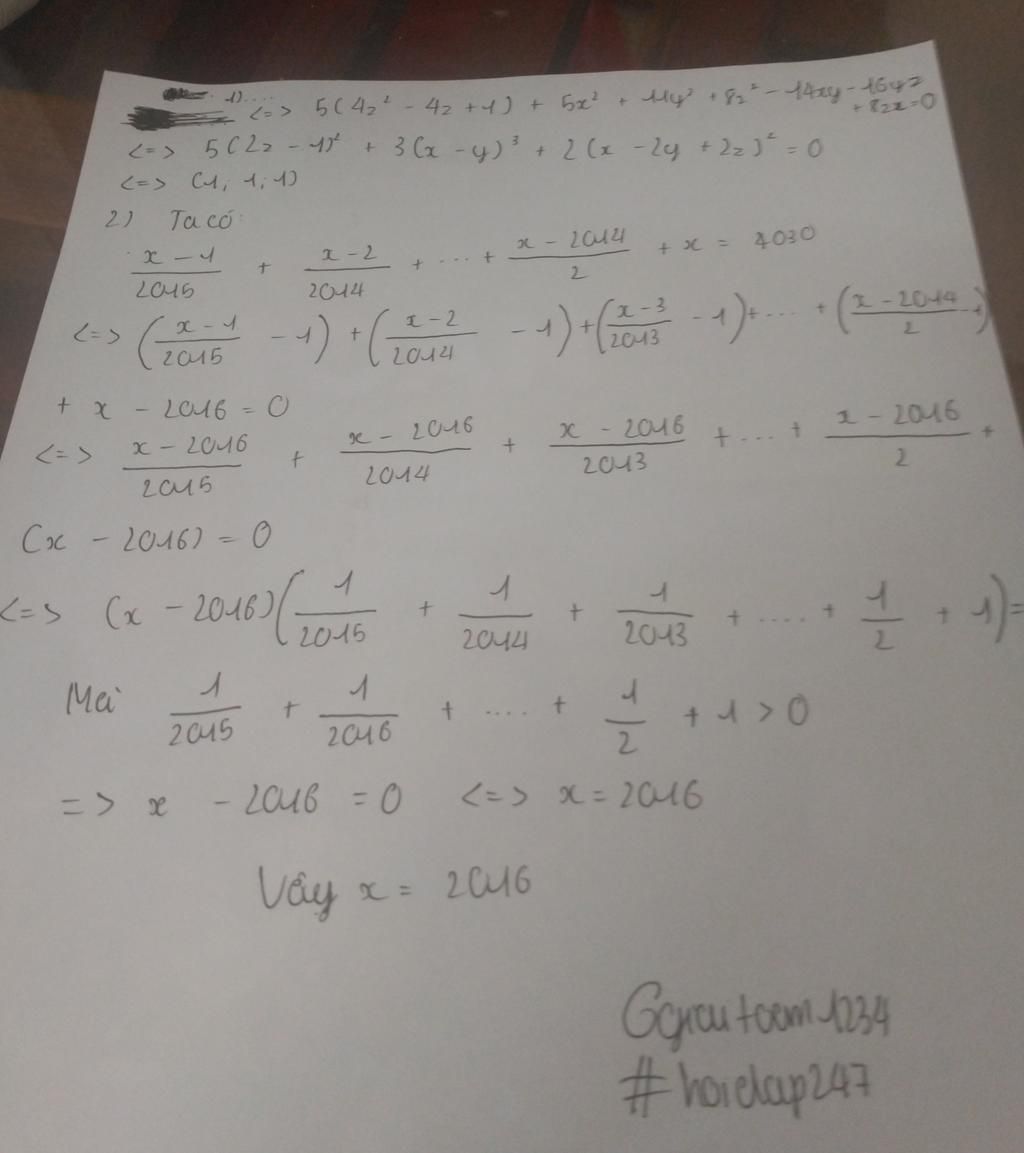 1)....
<=> 5(4z² - 4z + 1) + 5x² + 11y² + 8z² - 14xy - 16yz
+ 8zx = 0
<=> 5(2z - 1)² + 3(x - y)³ + 2(x - 2y + 2z)² = 0
<=> (1; 1; 1)
2) Ta có:
x - 1/2015 + x - 2/2014 + ... + x - 2014/2 + x = 4030
<=> (x - 1/2015 - 1) + (x - 2/2014 - 1) + (x - 3/2013 - 1) + ... + (x - 2014/2 - 1)
+ x - 2016 = 0
<=> x - 2016/2015 + x - 2016/2014 + x - 2016/2013 + ... + x - 2016/2 +
(x - 2016) = 0
<=> (x - 2016)(1/2015 + 1/2014 + 1/2013 + .... + 1/2 + 1) =
Mà 1/2015 + 1/2016 + .... + 1/2 + 1 > 0
=> x - 2016 = 0 <=> x = 2016
Vậy x = 2016
#hoidap247